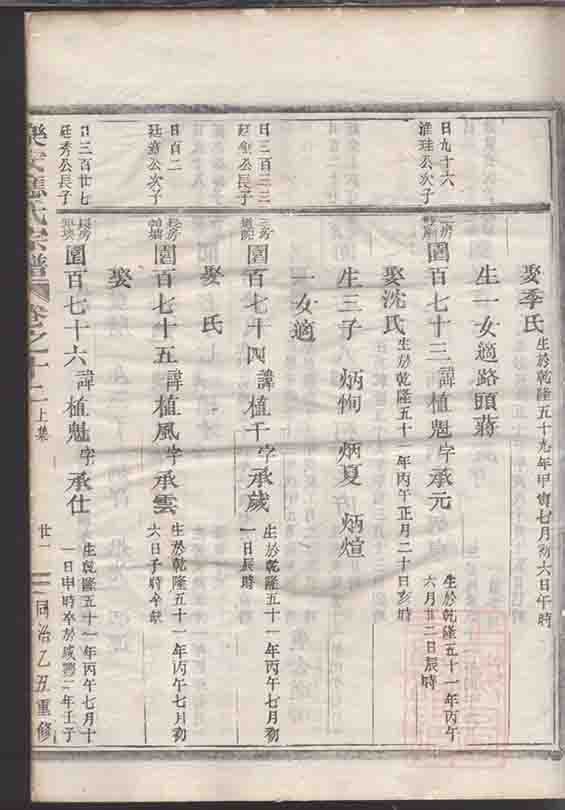 娶季氏生於乾隆五十九年甲寅七月初六日午時
生一女適路頭蔣
日九十六
淮珪公次子
圍百七十三諱植魁字承元生於乾隆五十一年丙午
六月廿二日辰時
娶沈氏生於乾隆五十一年丙午正月二十日亥時
生三子 炳恂 炳夏 炳煊
一女適
日三百二三
廷金公長子
三房
圍百七十四諱植千字承歲生於乾隆五十一年丙午七月初
一日辰時
娶 氏
日百二
廷道公次子
長房
圍百七十五諱植風字承雲生於乾隆五十一年丙午七月初
六日子時卒缺
娶
日三百廿七
廷秀公長子
長房
圍百七十六諱植魁字承仕生乾隆五十一年丙午七月十
一日申時卒於咸豐二年壬子
樂安孫氏宗譜 卷之十二上集 廿一 同治乙丑重修